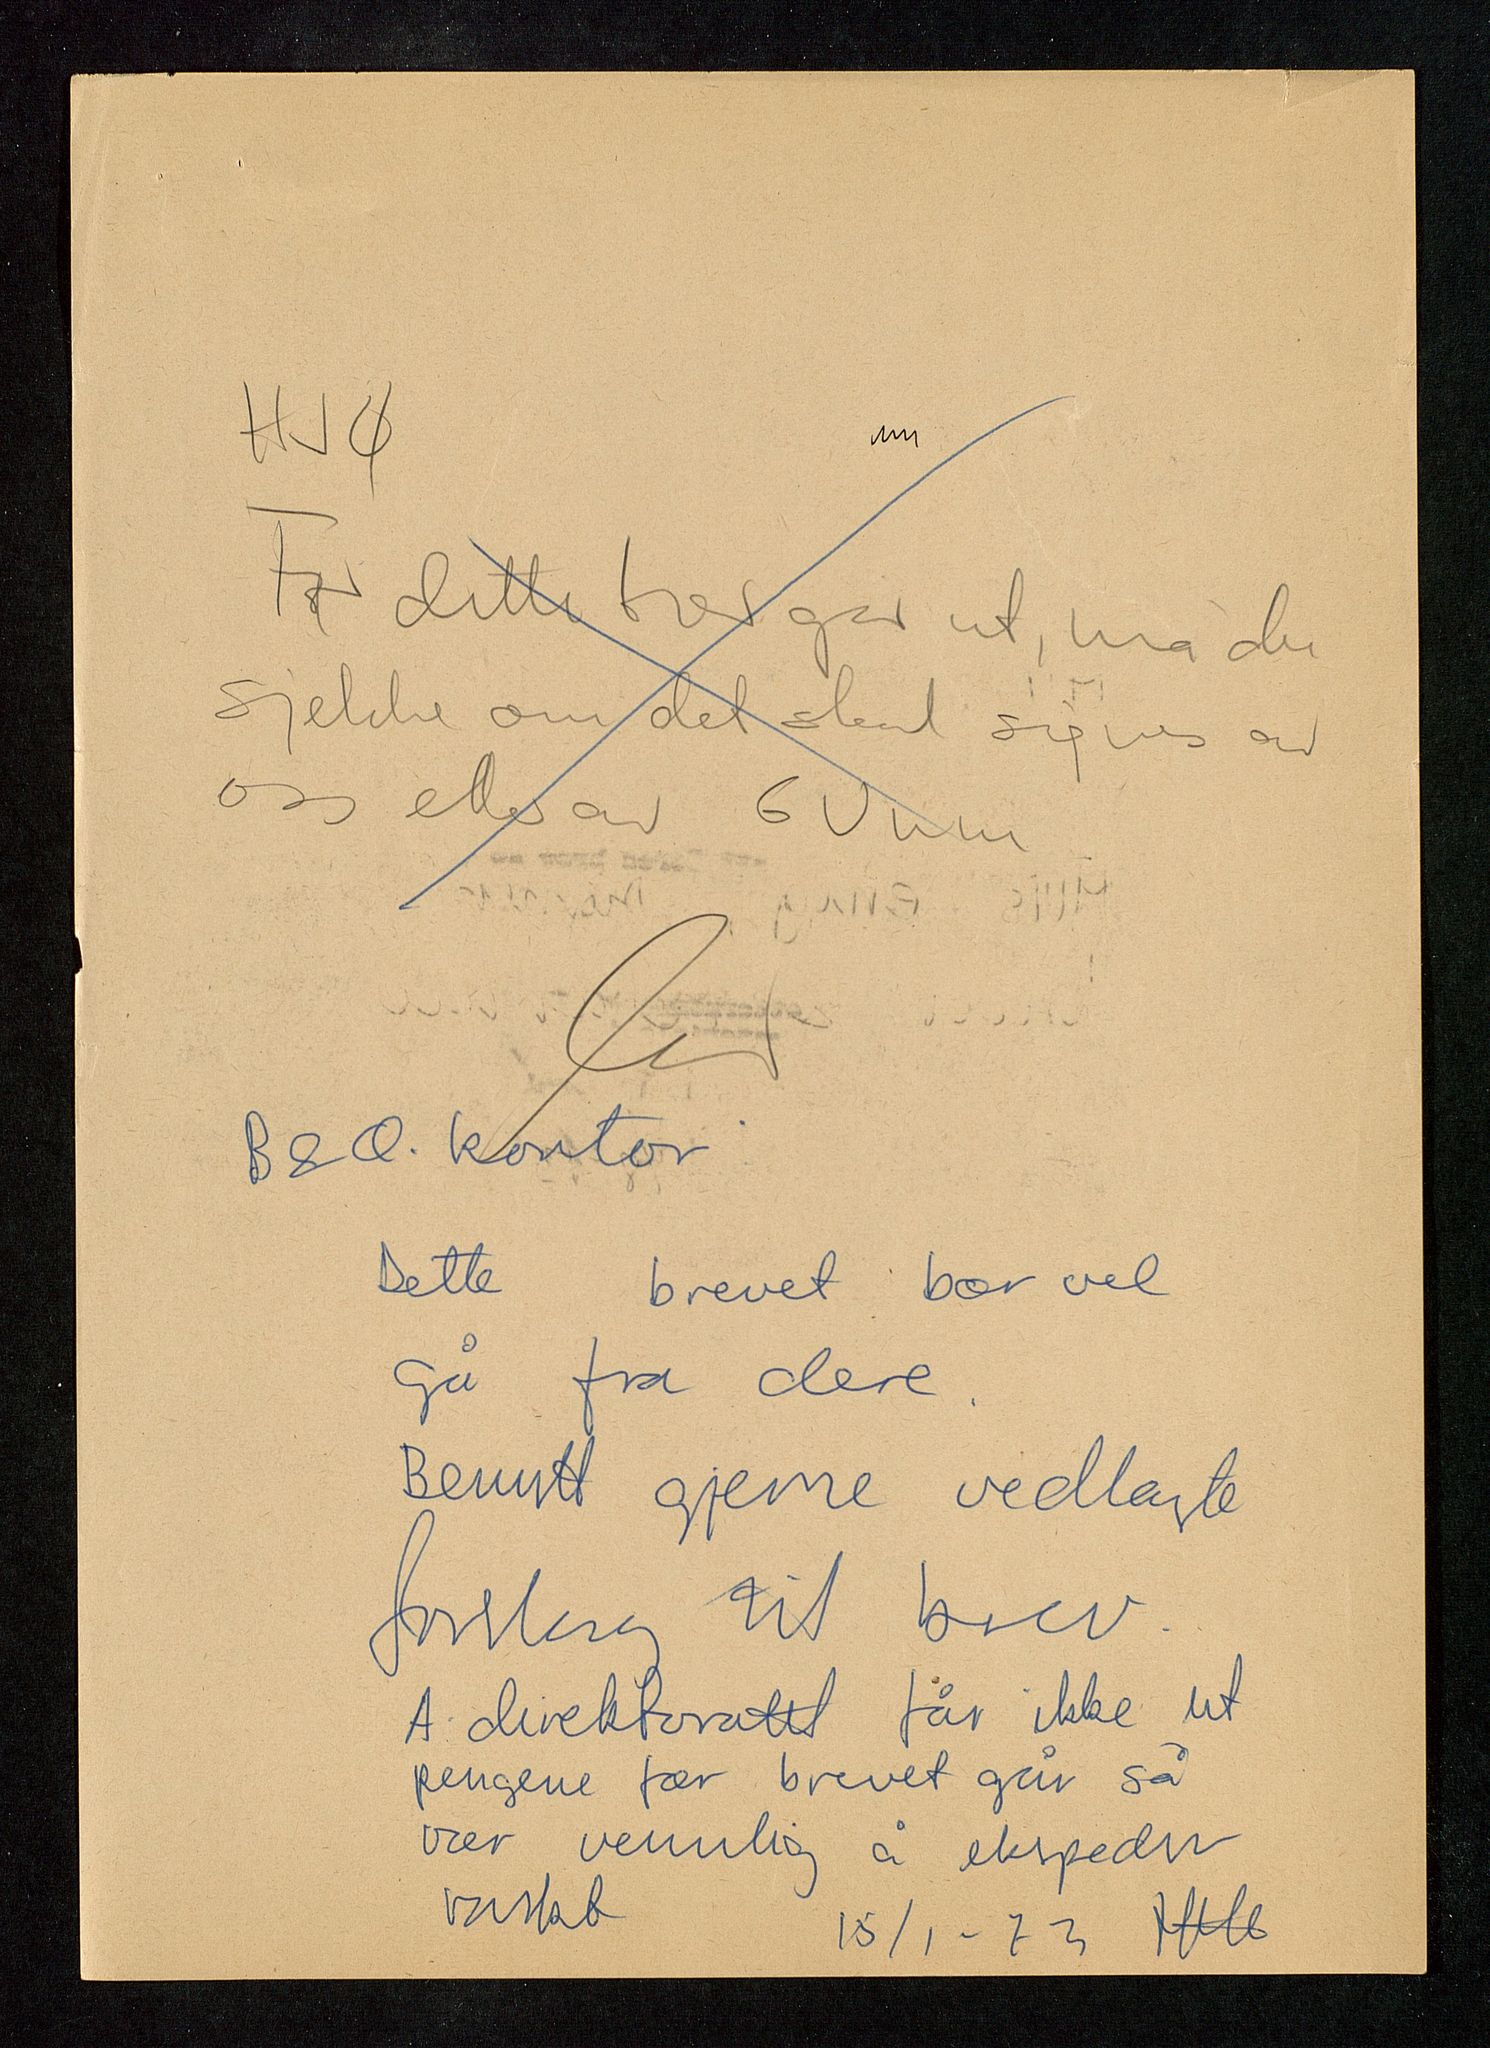 HJØ
Før dette brev går ut, må du
sjekke om det skal signes av
oss eller av
B & O. kontor
Dette brevet bør vel
gå fra dere.
Benytt gjerne vedlagte
forslag til brev.
A. direktoratet får ikke ut
pengene før brevet går så
vær vennlig å ekspeder
raskt
15/1-73